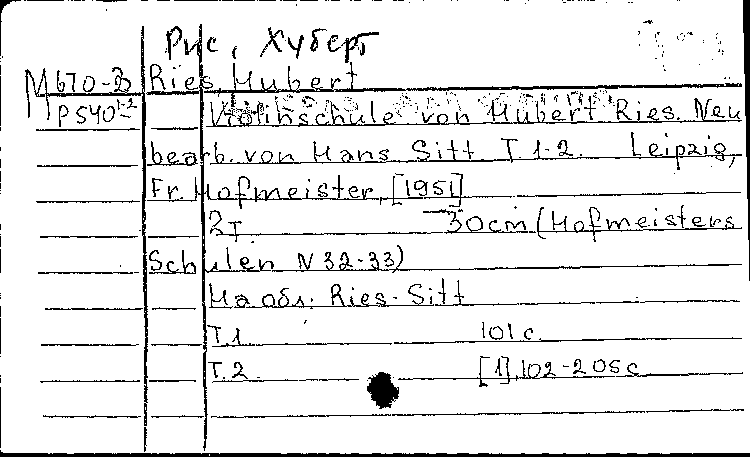 Рис, Хуберт
М670-В Ries, Hubert
Р540 1-2 Violinschule von Hubert Ries. Neu
bearb. von Hans Sitt T. 1-2. Leipzig,
Fr. Hofmeister, [1951]
2т. 30cm (Hofmeisters
Schulen N 32-33)
На обл.: Ries-Sitt
Т.1 101 с.
Т.2. [1], 102-205 с